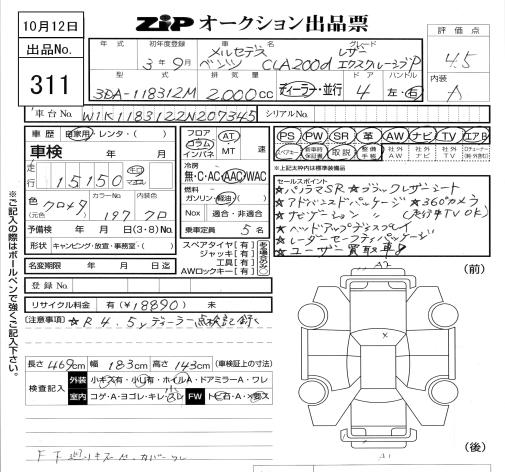 10月12日
ZIP オークション出品票
評価点
4.5
出品No.
311
年式
初年度登録
3年9月
車名
メルセデスベンツ CLA200d
グレード
レザーエクスクルーシブP
内装
A
型式
3DA-118312M
排気量
2000cc
ディーラー・並行
ドア
4
ハンドル
左・右
車台No.
W1K1183122N207345
シリアルNo.
車歴 自家用・レンタ( )
車検 年 月
走行
15150
キロ マイル
色
(元色)
クロメタ
カラーNo.
197
内装
クロ
予備検 年 月 日(3・8)No.
形状 キャンピング・放送・事務室・( )
名変期限 年 月 日迄
登録No.
フロア コラム インパネ
AT MT 速
冷房
無・C・AC・AAC・WAC
燃料
ガソリン・軽油・( )
Nox 適合・非適合
乗車定員 5名
スペアタイヤ[有]
ジャッキ[有]
工具[有]
AWロックキー[有]
PS PW SR 革 AW ナビ TV エアB
スペアキー 新車時保証書 取説 整備手帳 社外AW 社外ナビ 社外TV
※上記太枠内は標準装備品
セールスポイント
★パノラマSR ★ブラックレザーシート
★アドバンスドパッケージ ★360°カメラ
★ナビゲーション 〃 (走行中TV OK)
★ヘッドアップディスプレイ
★レーダーセーフティパッケージ
★ユーザー買取車
リサイクル料金 有(¥18890) 未
(注意事項) ★R4.5yディーラー点検記録
長さ 469cm 幅 183cm 高さ 143cm (車検証上の寸法)
検査記入
外装 小キズ有・小凹有・ホイルA・ドアミラーA・ワレ
室内 コゲ・A・ヨゴレ・キレ・スレ
FW トビ石・A・×要ス
(前)
A2
×
A1
(後)
※ご記入の際はボールペンで強くご記入下さい。